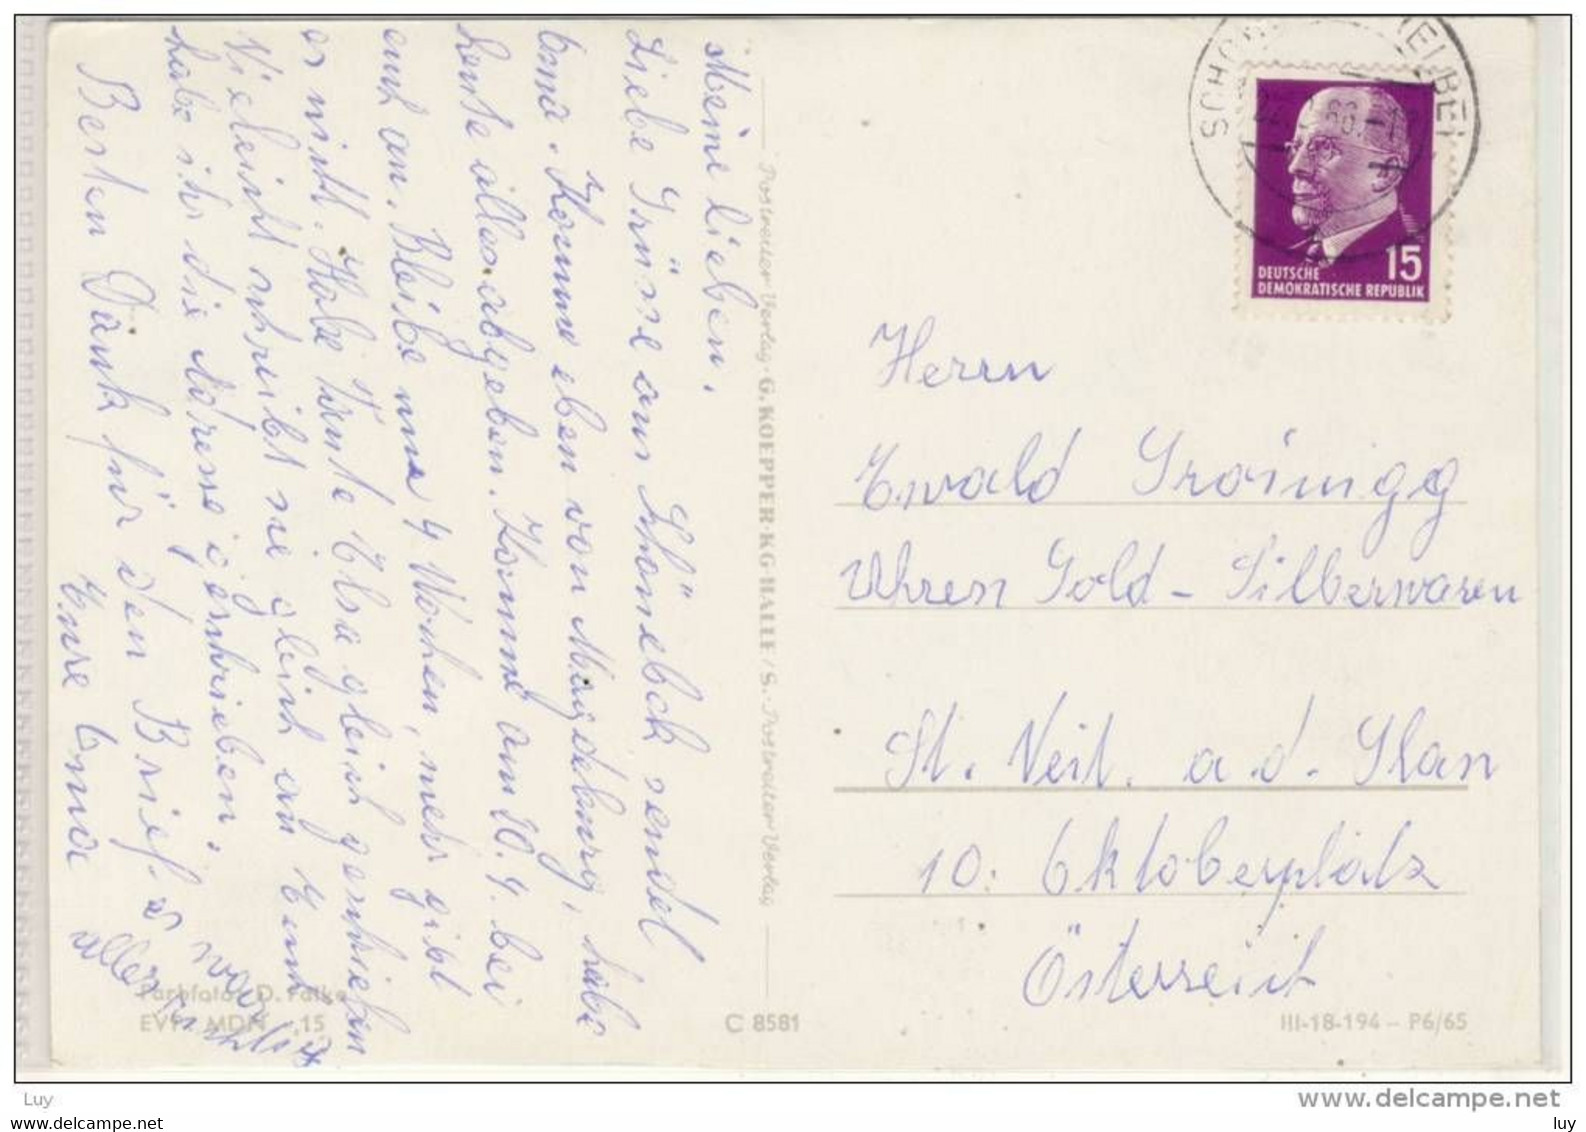 Meine lieben.
Liebe Grüsse aus Schönebeck sendet
Oma. Komme eben von Magdeburg, habe
heute alles abgeben. Komme am 10. 4. bei
euch an. Bleibe nur 4 Wochen, mehr gibt
es nicht. Habe Tante Elsa gleich geschrieben
Vieleicht schreibt sie gleich an Euch
habe ihr die Adresse geschrieben,
Besten Dank für den Brief. es war
alles
Eure Oma
Postreiter Verlag · G. KOEPPER · KG HALLE / S. · Postreiter Verlag
Farbfoto: D. Falke
EVP MDN ,15
C 8581
III-18-194 – P6/65
15
DEUTSCHE
DEMOKRATISCHE REPUBLIK
Herrn
Ewald Groinigg
Uhren Gold - Silberwaren
St. Veit. a. d. Glan
10. Oktoberplatz
Österreich
Luy
www.delcampe.net
www.delcampe.com
luy